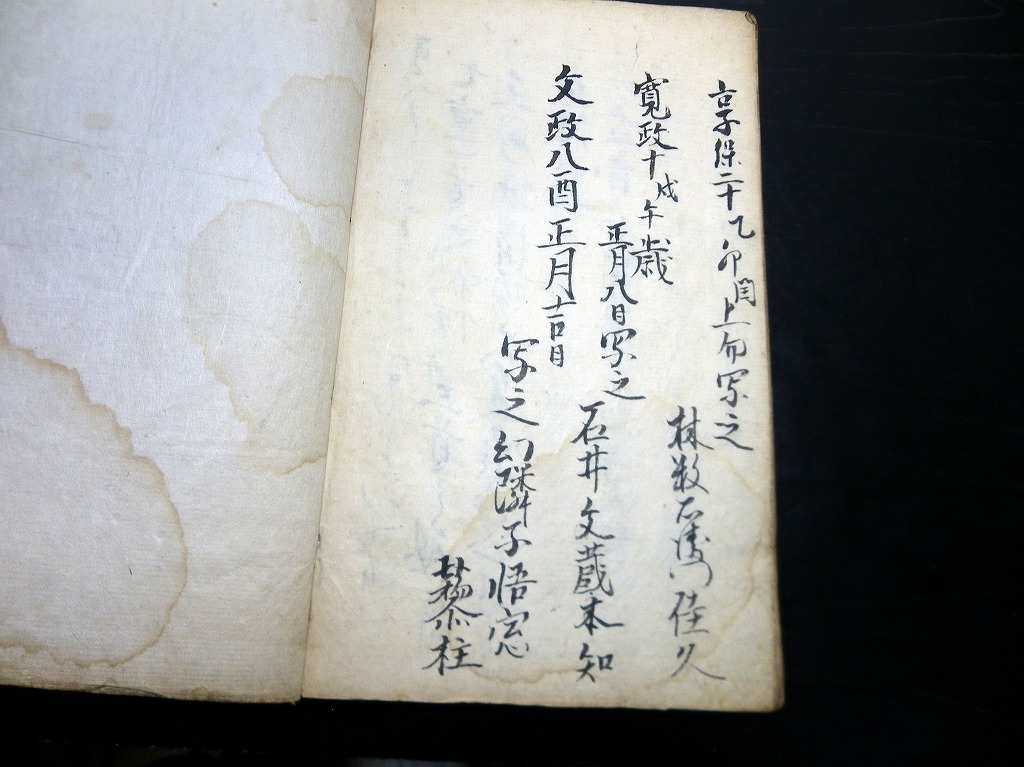 享保二十乙卯閏上旬写之
林数右衛門佳久
寛政十戊午歳
正月八日写之
石井文蔵本知
文政八酉正月吉日
写之幻隣子悟窓
柱